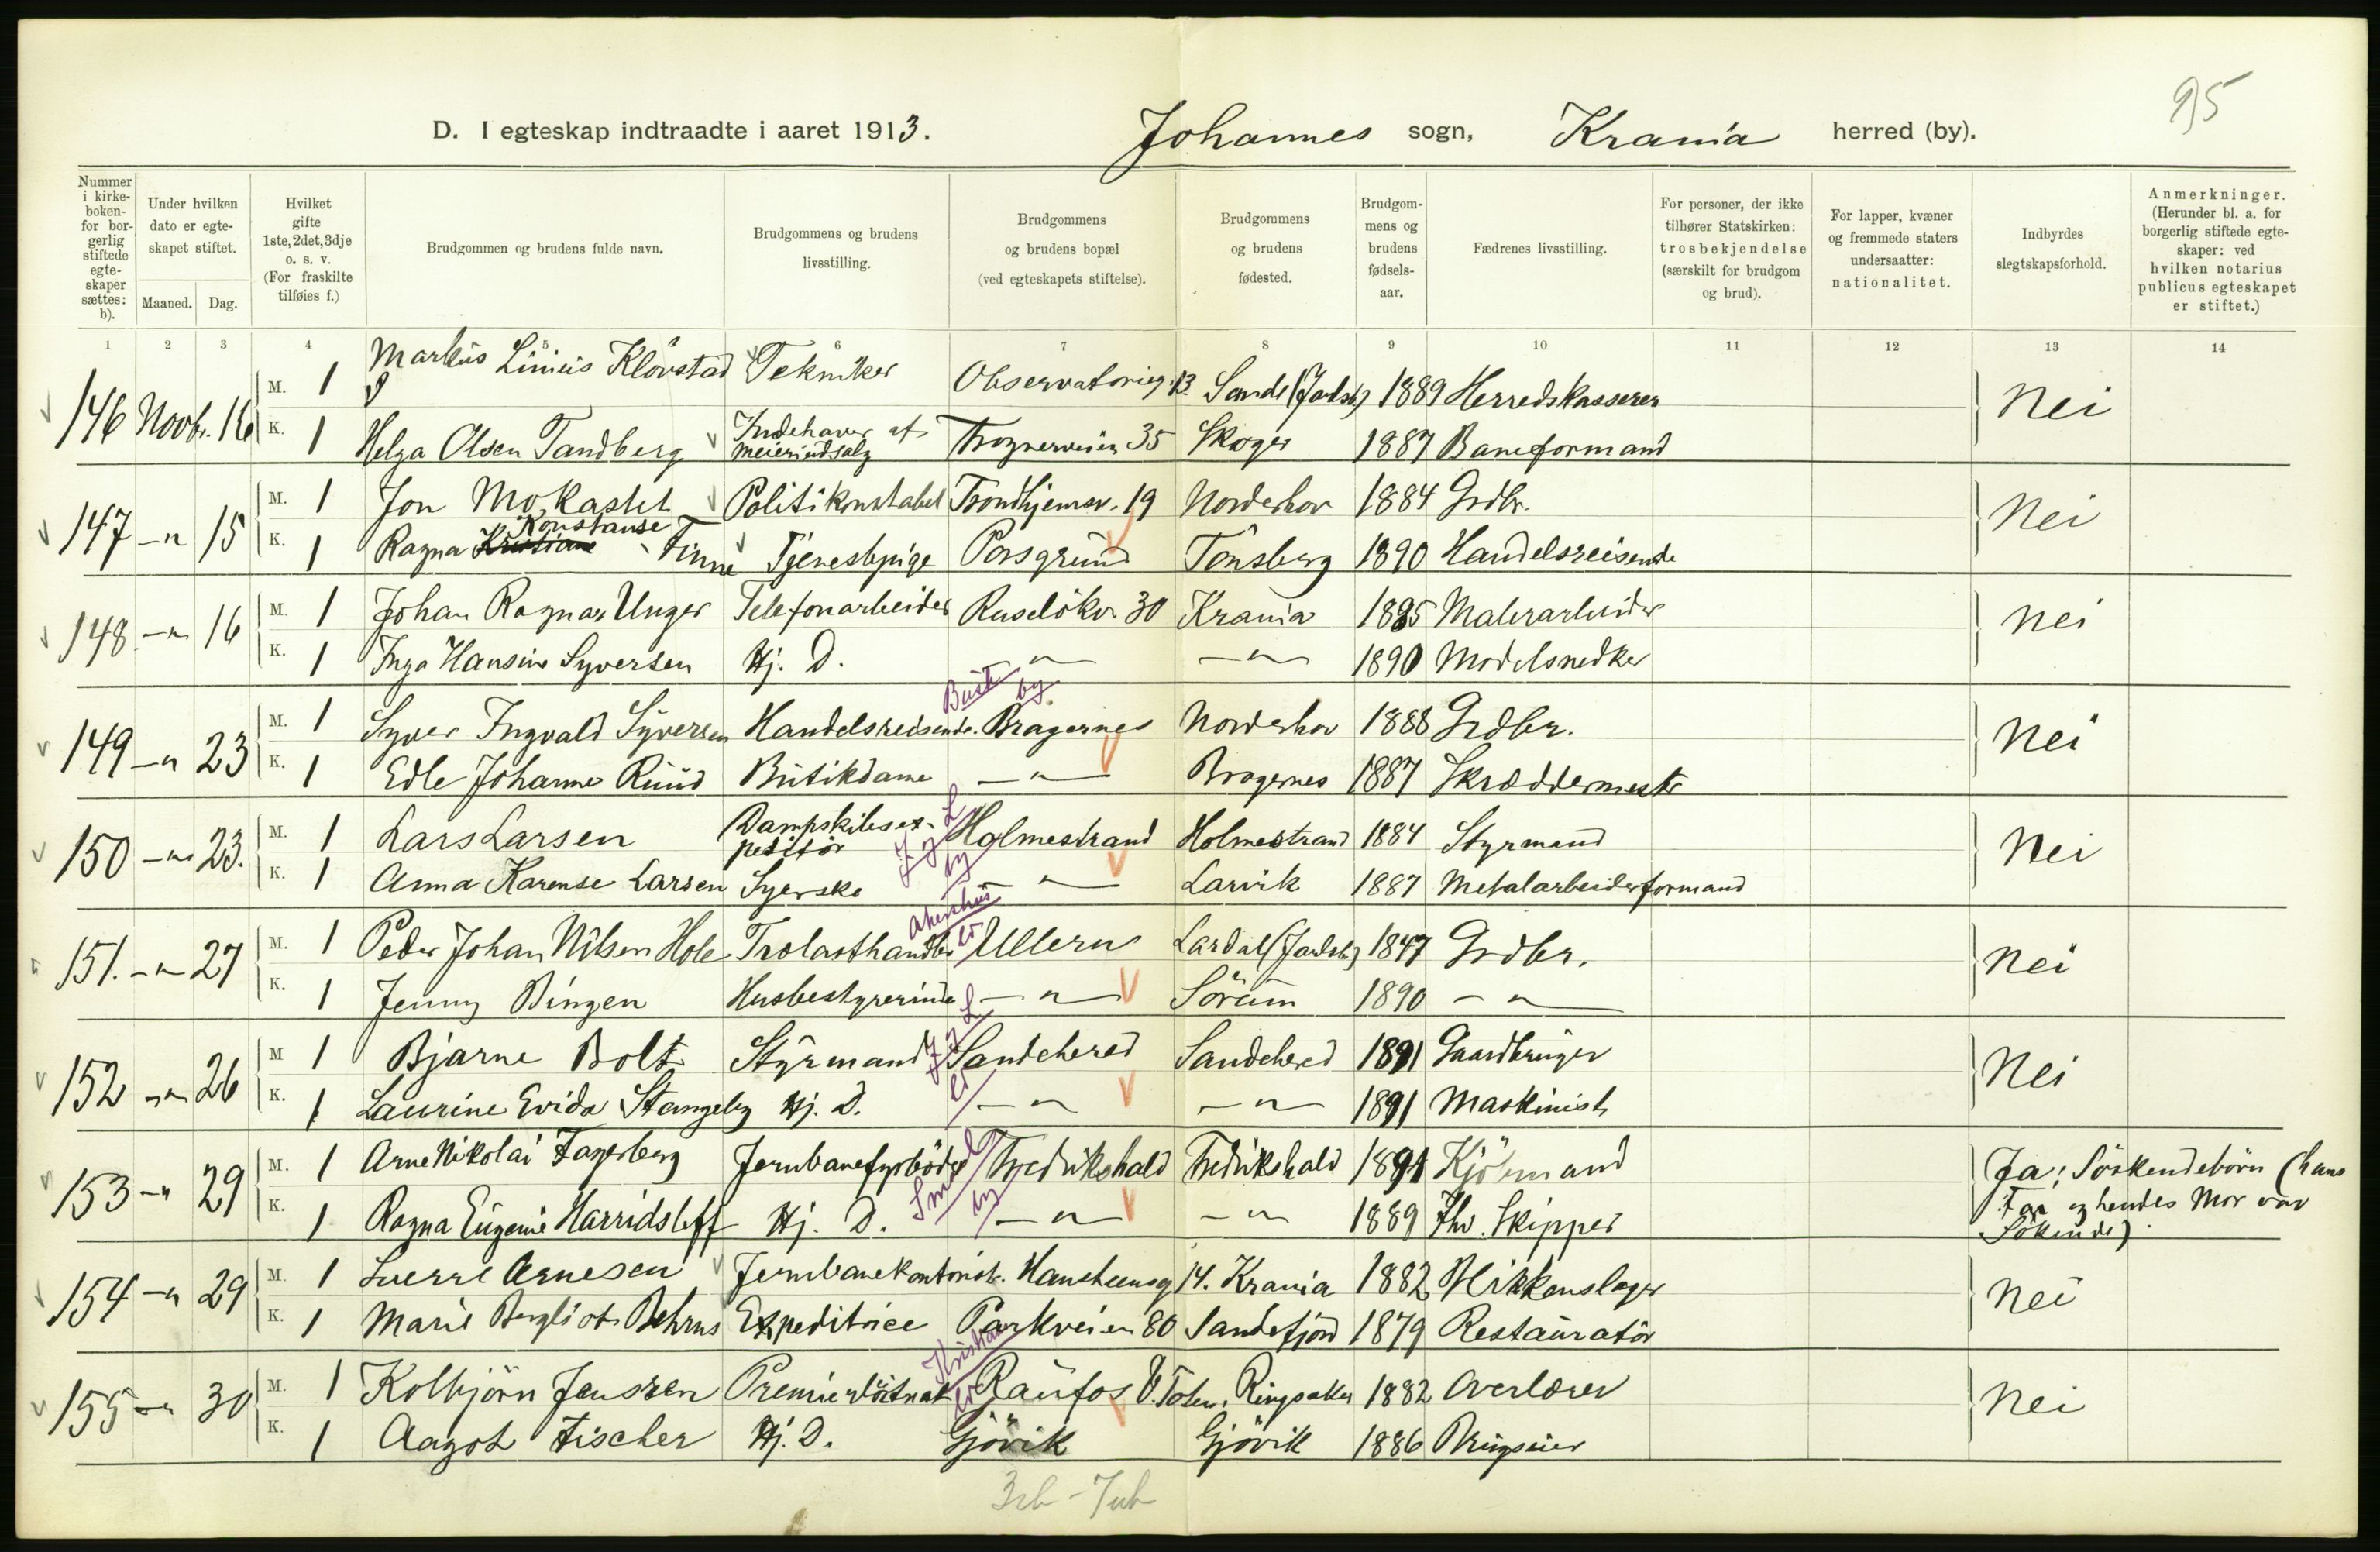 95
D. I egteskap indtraadte i aaret 1913. Johannes sogn, Krania herred (by).
Nummer i kirke-boken- for bor-gerlig stiftede egte-skaper sættes: b).
Under hvilken dato er egte-skapet stiftet.
Maaned. Dag.
Hvilket gifte 1ste, 2det, 3dje o. s. v. (For fraskilte tilføies f.)
Brudgommen og brudens fulde navn.
Brudgommens og brudens livsstilling.
Brudgommens og brudens bopæl (ved egteskapets stiftelse).
Brudgommens og brudens fødested.
Brudgom-mens og brudens fødsels-aar.
Fædrenes livsstilling.
For personer, der ikke tilhører Statskirken: trosbekjendelse (særskilt for brudgom og brud).
For lapper, kvæner og fremmede staters undersaatter: nationalitet.
Indbyrdes slegtskapsforhold.
Anmerkninger. (Herunder bl. a. for borgerlig stiftede egte-skaper: ved hvilken notarius publicus egteskapet er stiftet.)
1 2 3 4 5 6 7 8 9 10 11 12 13 14
146 Novbr. 16 M. 1 Markus Linius Klövstad Tekniker Observatorieg. 13. Sande (Jarlsb.) 1889 Herredskasserer Nei
K. 1 Helga Olsen Tandberg Indehaver af meieriudsalg Frognerveien 35 Skoger 1887 Baneformand
147 -"- 15 M. 1 Jon Mokastet Politikonstabel Trondhjemsv. 19 Norderhov 1884 Grdbr. Nei
K. 1 Ragna Kristiane Konstanse Finne Tjenestepige Porsgrund Tönsberg 1890 Handelsreisende
148 -"- 16 M. 1 Johan Ragnar Unger Telefonarbeider Ruselökv. 30 Krania 1885 Malerarbeider Nei
K. 1 Inga Hansine Syversen Hj. D. -"- -"- 1890 Modelsnedker
Busk by.
149 -"- 23 M. 1 Syver Ingvald Syversen Handelsreisende. Bragernes Norderhov 1888 Grdbr. Nei
K. 1 Edle Johanne Ruud Butikdame -"- Bragernes 1887 Skræddermester
J g L by
150 -"- 23. M. 1 Lars Larsen Dampskibsex-peditör Holmestrand Holmestrand 1884 Styrmand Nei
K. 1 Anna Karense Larsen Syerske -"- Larvik 1887 Metalarbeiderformand
Akershus
151. -"- 27 M. 1 Peder Johan Nilsen Hole Trelasthandler Ullern Lardal (Jarlsb.) 1847 Grdbr. Nei
K. 1 Jenny Bingen Husbestyrerinde -"- Sörum 1890 -"-
J g L
152 -"- 26 M 1 Bjarne Bolt Styrmand Sandehered Sandehered 1891 Gaardbruger Nei
K. 1 Laurine Evida Stangeby Hj. D. -"- -"- 1891 Maskinist
Smål by
153 -"- 29 M. 1 Arne Nikolai Fagerberg Jernbanefyrböder Fredrikshald Fredrikshald 1891 Kjöbmand Ja; Söskendebörn (hans Far og hendes Mor var Sökende)
K. 1 Ragna Eugenie Harridsleff Hj. D. -"- -"- 1889 Fhv. Skipper
154 -"- 29 M. 1 Sverre Arnesen Jernbanekontorist. Hansteensg 14. Krania 1882 Blikkenslager Nei
K. 1 Marie Bergliot Behrns Expeditrice Parkveien 80 Sandefjord 1879 Restauratör
Kristian
155 -"- 30 M. 1 Kolbjörn Janssen Premierlöitnat Raufos V. Toten. Ringsaker 1882 Overlærer Nei
K. 1 Aagot Fischer Hj. D. Gjövik Gjövik 1886 Brugseier